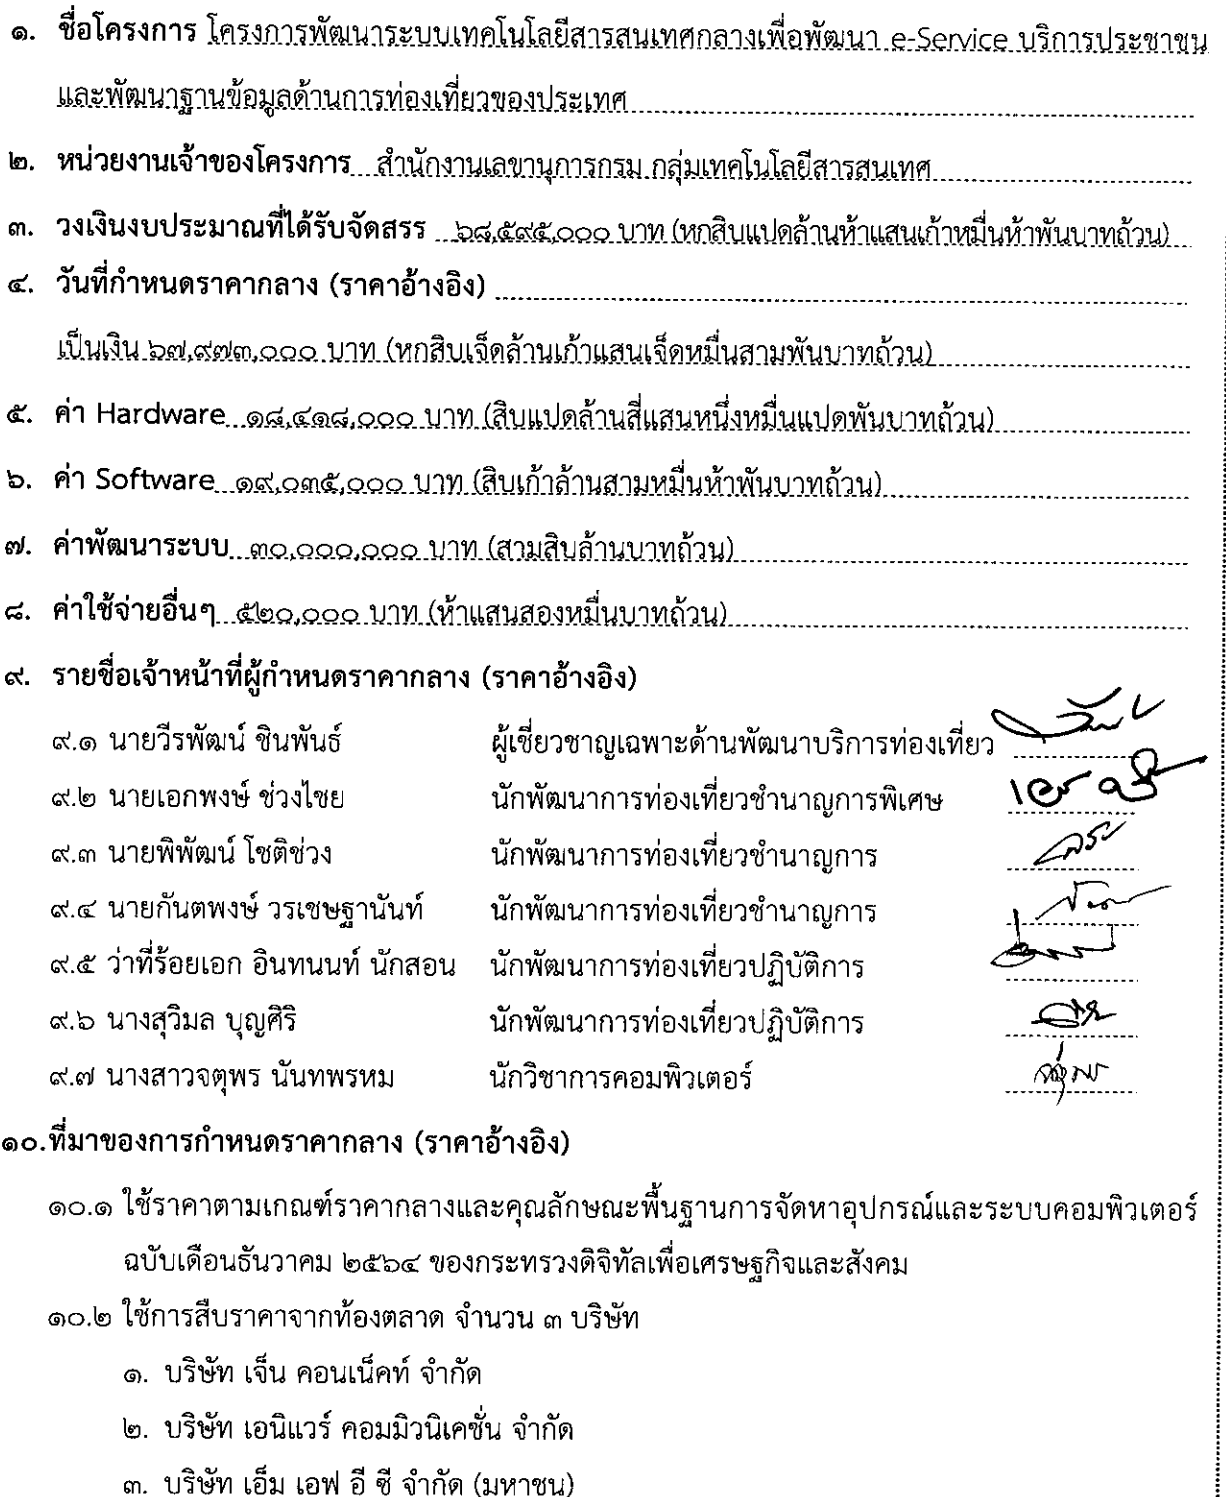 ๑. ชื่อโครงการ โครงการพัฒนาระบบเทคโนโลยีสารสนเทศกลางเพื่อพัฒนา e-Service บริการประชาชน
และพัฒนาฐานข้อมูลด้านการท่องเที่ยวของประเทศ
๒. หน่วยงานเจ้าของโครงการ สำนักงานเลขานุการกรม กลุ่มเทคโนโลยีสารสนเทศ
๓. วงเงินงบประมาณที่ได้รับจัดสรร ๖๘,๕๙๕,๐๐๐ บาท (หกสิบแปดล้านห้าแสนเก้าหมื่นห้าพันบาทถ้วน)
๔. วันที่กำหนดราคากลาง (ราคาอ้างอิง)
เป็นเงิน ๖๗,๙๗๓,๐๐๐ บาท (หกสิบเจ็ดล้านเก้าแสนเจ็ดหมื่นสามพันบาทถ้วน)
๕. ค่า Hardware ๑๘,๔๑๘,๐๐๐ บาท (สิบแปดล้านสี่แสนหนึ่งหมื่นแปดพันบาทถ้วน)
๖. ค่า Software ๑๙,๐๓๕,๐๐๐ บาท (สิบเก้าล้านสามหมื่นห้าพันบาทถ้วน)
๗. ค่าพัฒนาระบบ ๓๐,๐๐๐,๐๐๐ บาท (สามสิบล้านบาทถ้วน)
๘. ค่าใช้จ่ายอื่นๆ ๕๒๐,๐๐๐ บาท (ห้าแสนสองหมื่นบาทถ้วน)
๙. รายชื่อเจ้าหน้าที่ผู้กำหนดราคากลาง (ราคาอ้างอิง)
๙.๑ นายวีรพัฒน์ ชินพันธ์ ผู้เชี่ยวชาญเฉพาะด้านพัฒนาบริการท่องเที่ยว
๙.๒ นายเอกพงษ์ ช่วงไชย นักพัฒนาการท่องเที่ยวชำนาญการพิเศษ
๙.๓ นายพิพัฒน์ โชติช่วง นักพัฒนาการท่องเที่ยวชำนาญการ
๙.๔ นายกันตพงษ์ วรเชษฐานันท์ นักพัฒนาการท่องเที่ยวชำนาญการ
๙.๕ ว่าที่ร้อยเอก อินทนนท์ นักสอน นักพัฒนาการท่องเที่ยวปฏิบัติการ
๙.๖ นางสุวิมล บุญศิริ นักพัฒนาการท่องเที่ยวปฏิบัติการ
๙.๗ นางสาวจตุพร นันทพรหม นักวิชาการคอมพิวเตอร์
๑๐.ที่มาของการกำหนดราคากลาง (ราคาอ้างอิง)
๑๐.๑ ใช้ราคาตามเกณฑ์ราคากลางและคุณลักษณะพื้นฐานการจัดหาอุปกรณ์และระบบคอมพิวเตอร์
ฉบับเดือนธันวาคม ๒๕๖๔ ของกระทรวงดิจิทัลเพื่อเศรษฐกิจและสังคม
๑๐.๒ ใช้การสืบราคาจากท้องตลาด จำนวน ๓ บริษัท
๑. บริษัท เจ็น คอนเน็คท์ จำกัด
๒. บริษัท เอนิแวร์ คอมมิวนิเคชั่น จำกัด
๓. บริษัท เอ็ม เอฟ อี ซี จำกัด (มหาชน)